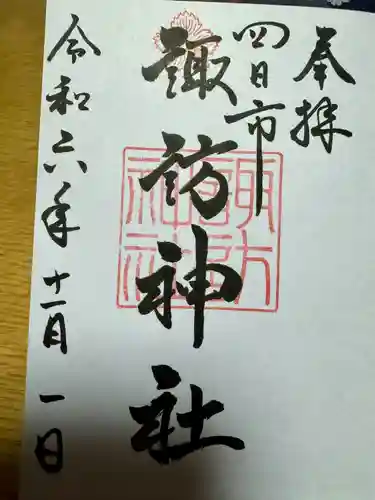 奉拝
四日市
諏訪神社
諏訪神社
令和六年十一月一日